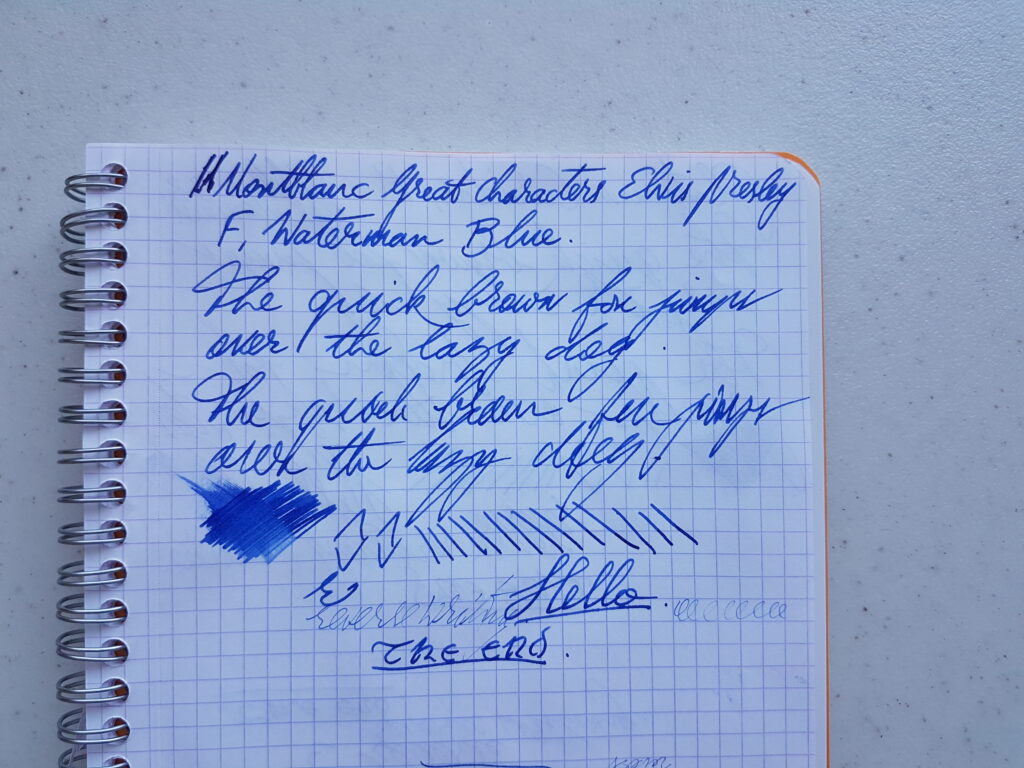 Montblanc Great Characters Elvis Presley
F, Waterman Blue.
The quick brown fox jumps
over the lazy dog.
The quick brown fox jumps
over the lazy dog.
Hello.
reverse writing
The end.